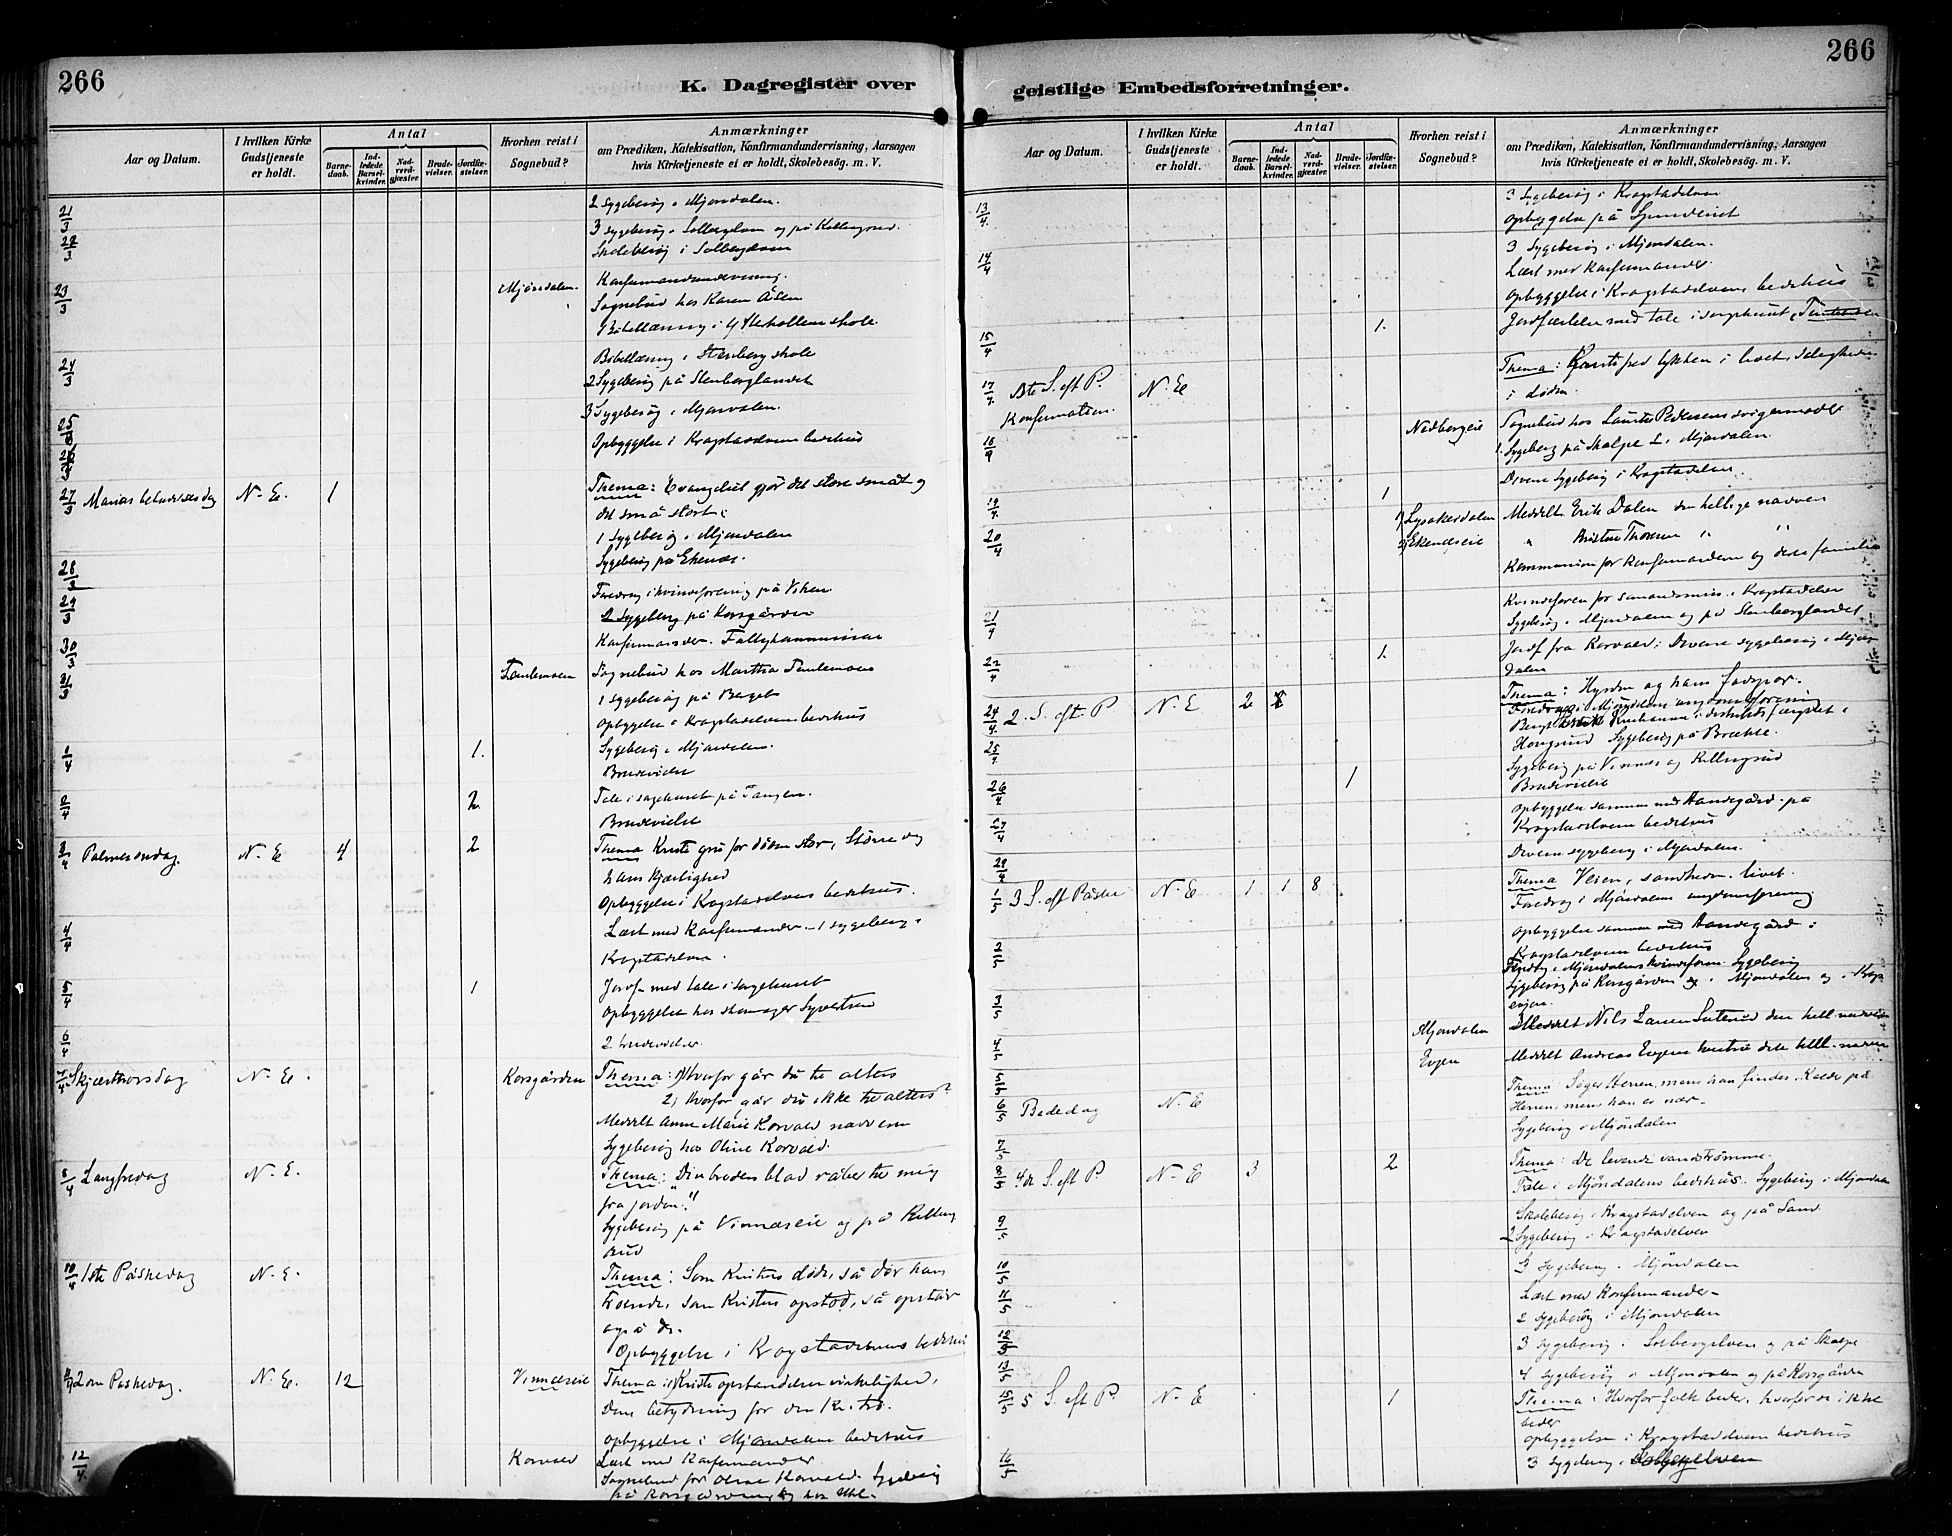 266
K. Dagregister over
Aar og Datum.
I hvilken Kirke Gudstjeneste er holdt.
Antal
Barnedaab.
Indledede Barselkvinder.
Nadverdgjæster.
Brudevielser.
Jordfæstelser.
Hvorhen reist i Sognebud?
Anmærkninger
om Prædiken, Katekisation, Konfirmandundervisning, Aarsagen
hvis Kirketjeneste ei er holdt, Skolebesög. m. V.
21/3 2 Sygebesøg i Mjøndalen.
22/3 3 Sygebesøg i Solbergelven og på
Skolebesøg i Solbergelven
23/3 Mjøndalen. Konfirmandundervisning.
Sognebud hos Karen Åsen
Bibellæsning i skole
24/3 Bibellæsning i Stenberg skole
2 Sygebesøg på Stenberglandet
3 Sygebesøg i Mjøndalen.
25/3 Opbyggelse i Krogstadelvens bedehus
27/3 Marias bebudelsesdag N. E. 1 Thema: Evangeliet gjør det store småt og
det små stort.
1 Sygebesøg i Mjøndalen
Sygebesøg på Ekenæs.
28/3 Foredrag i kvindeforening på Viken
29/3 2 Sygebesøg på Korsgården
30/3 Konfirmander. Fattigkommission
31/3 Sognebud hos Martha
1 sygebesøg på Berget
Opbyggelse i Krogstadelvens bedehus
1/4 1. Sygebesøg i Mjøndalen.
Brudevielse
2/4 2. Tale i sørgehuset på Tangen.
Brudevielse
3/4 Palmesøndag. N. E 4 2 Thema Kristi gru for døden stor, større dog
hans kjærlighed
Opbyggelse i Krogstadelvens bedehus.
4/4 Læst med konfirmander. 1 sygebesøg i
Krogstadelven.
5/4 1 Jordf. med tale i sørgehuset
Opbyggelse hos Syvertsen
6/4 2 brudevielser.
7/4 Skjærthorsdag N. E. Korsgården Thema: 1) Hvorfor går du til alters
2) Hvorfor går du ikke til alters?
Meddelt Anne Marie Korvald nadveren
Sygebesøg hos Oline Korvald.
8/4 Langfredag N. E. Thema: "Din broders blod råber til mig
fra jorden."
Sygebesøg på Vinnæseie og på Killing
rud
10/4 1ste Påskedag N. E. Thema: Som Kristus døde, så dør hans
troende, som Kristus opstod, så opstår
også de.
Opbyggelse i Krogstadelvens bedehus
11/4 2den Påskedag. N. E. 12 Vinnæseie Thema: Kristi opstandelses virkelighed,
Dens betydning for den Kr. tro.
Opbyggelse i Mjøndalens bedehus
12/4 Korvald Læst med konfirmander
Sognebud for Oline Korvald. Sygebesøg
på Korsgården og hos
266
geistlige Embedsforretninger.
Aar og Datum.
I hvilken Kirke Gudstjeneste er holdt.
Antal
Barnedaab.
Indledede Barselkvinder.
Nadverdgjæster.
Brudevielser.
Jordfæstelser.
Hvorhen reist i Sognebud?
Anmærkninger
om Prædiken, Katekisation, Konfirmandundervisning, Aarsagen
hvis Kirketjeneste ei er holdt, Skolebesög. m. V.
13/4 3 Sygebesøg i Krogstadelven
Opbyggelse på
14/4 3 Sygebesøg i Mjøndalen.
Læst med konfirmander
Opbyggelse i Krogstadelvens bedehus
15/4 1. Jordfæstelse med tale i sørgehuset
17/4 1ste S. eft P. N. E. Thema: fred lykken i livet, saligheden
Konfirmation. i døden.
18/4 Nedbergeie Sognebud hos Pedersens svigermoder
1 Sygebesøg på Skalpe 2 i Mjøndalen.
Diverse Sygebesøg i Krogstadelven.
19/4 1 Lysakerdalen Meddelt Erik Dalen den hellige nadver
20/4 Ekendseie " Kristen Thoresen "
Kommunion for konfirmandene og deres familie
21/4 Kvindeforen for sømandsmis. i Krogstadelven
Sygebesøg i Mjøndalen og på Stenberglandet
22/4 1. Jordf fra Korvald. Diverse sygebesøg i Mjøn
dalen
24/4 2. S. eft. P N. E 2 Thema: Hyrden og hans fodspor.
Foredrag i Mjøndalens ungdomsforening
25/4 Hougsund Sygebesøg på Brække.
Sygebesøg på Vinnæs og Killingrud
26/4 1 Brudevielse
27/4 Opbyggelse sammen med Aandegård på
Krogstadelvens bedehus
29/4 Diverse sygebesøg i Mjøndalen.
1/5 3 S. eft Påske N. E 1 1 8 Thema Veien, sandheden, livet.
Foredrag i Mjøndalens ungdomsforening
2/5 Opbyggelse sammen med Aandegård i
Krogstadelvens bedehus
Foredrag i Mjøndalens kvindeforen. Sygebesøg
3/5 Sygebesøg på Korsgården og i Mjøndalen og i Krog
elven.
4/5 Mjøndalen Meddelt Nils Larsen den hell nadver
Evjen Meddelt Andreas Evjens hustru det hell. nadver
6/5 Bededag N. E Thema: Søger Herren, mens han findes. Kalder på
Herren, mens han er nær.
7/5 Sygebesøg i Mjøndalen
8/5 4de S. eft P. N. E 3 2 Thema: De levende vandstrømme.
Tale i Mjøndalens bedehus. Sygebesøg i Mjøndalen
9/5 Skolebesøg i Krogstadelven og på Sand.
2 Sygebesøg i Krogstadelven
10/5 3 Sygebesøg i Mjøndalen
11/5 Læst med konfirmander
2 sygebesøg i Mjøndalen
12/5 3 Sygebesøg i Solbergelven og på Skalpe
13/5 4 Sygebesøg i Mjøndalen og på Korsgården
15/5 5 S. eft P. N. E 1 Thema: Hvorfor folk beder, hvorfor vi ikke
beder
Opbyggelse i Krogstadelvens bedehus
16/5 3 Sygebesøg i Solbergelven